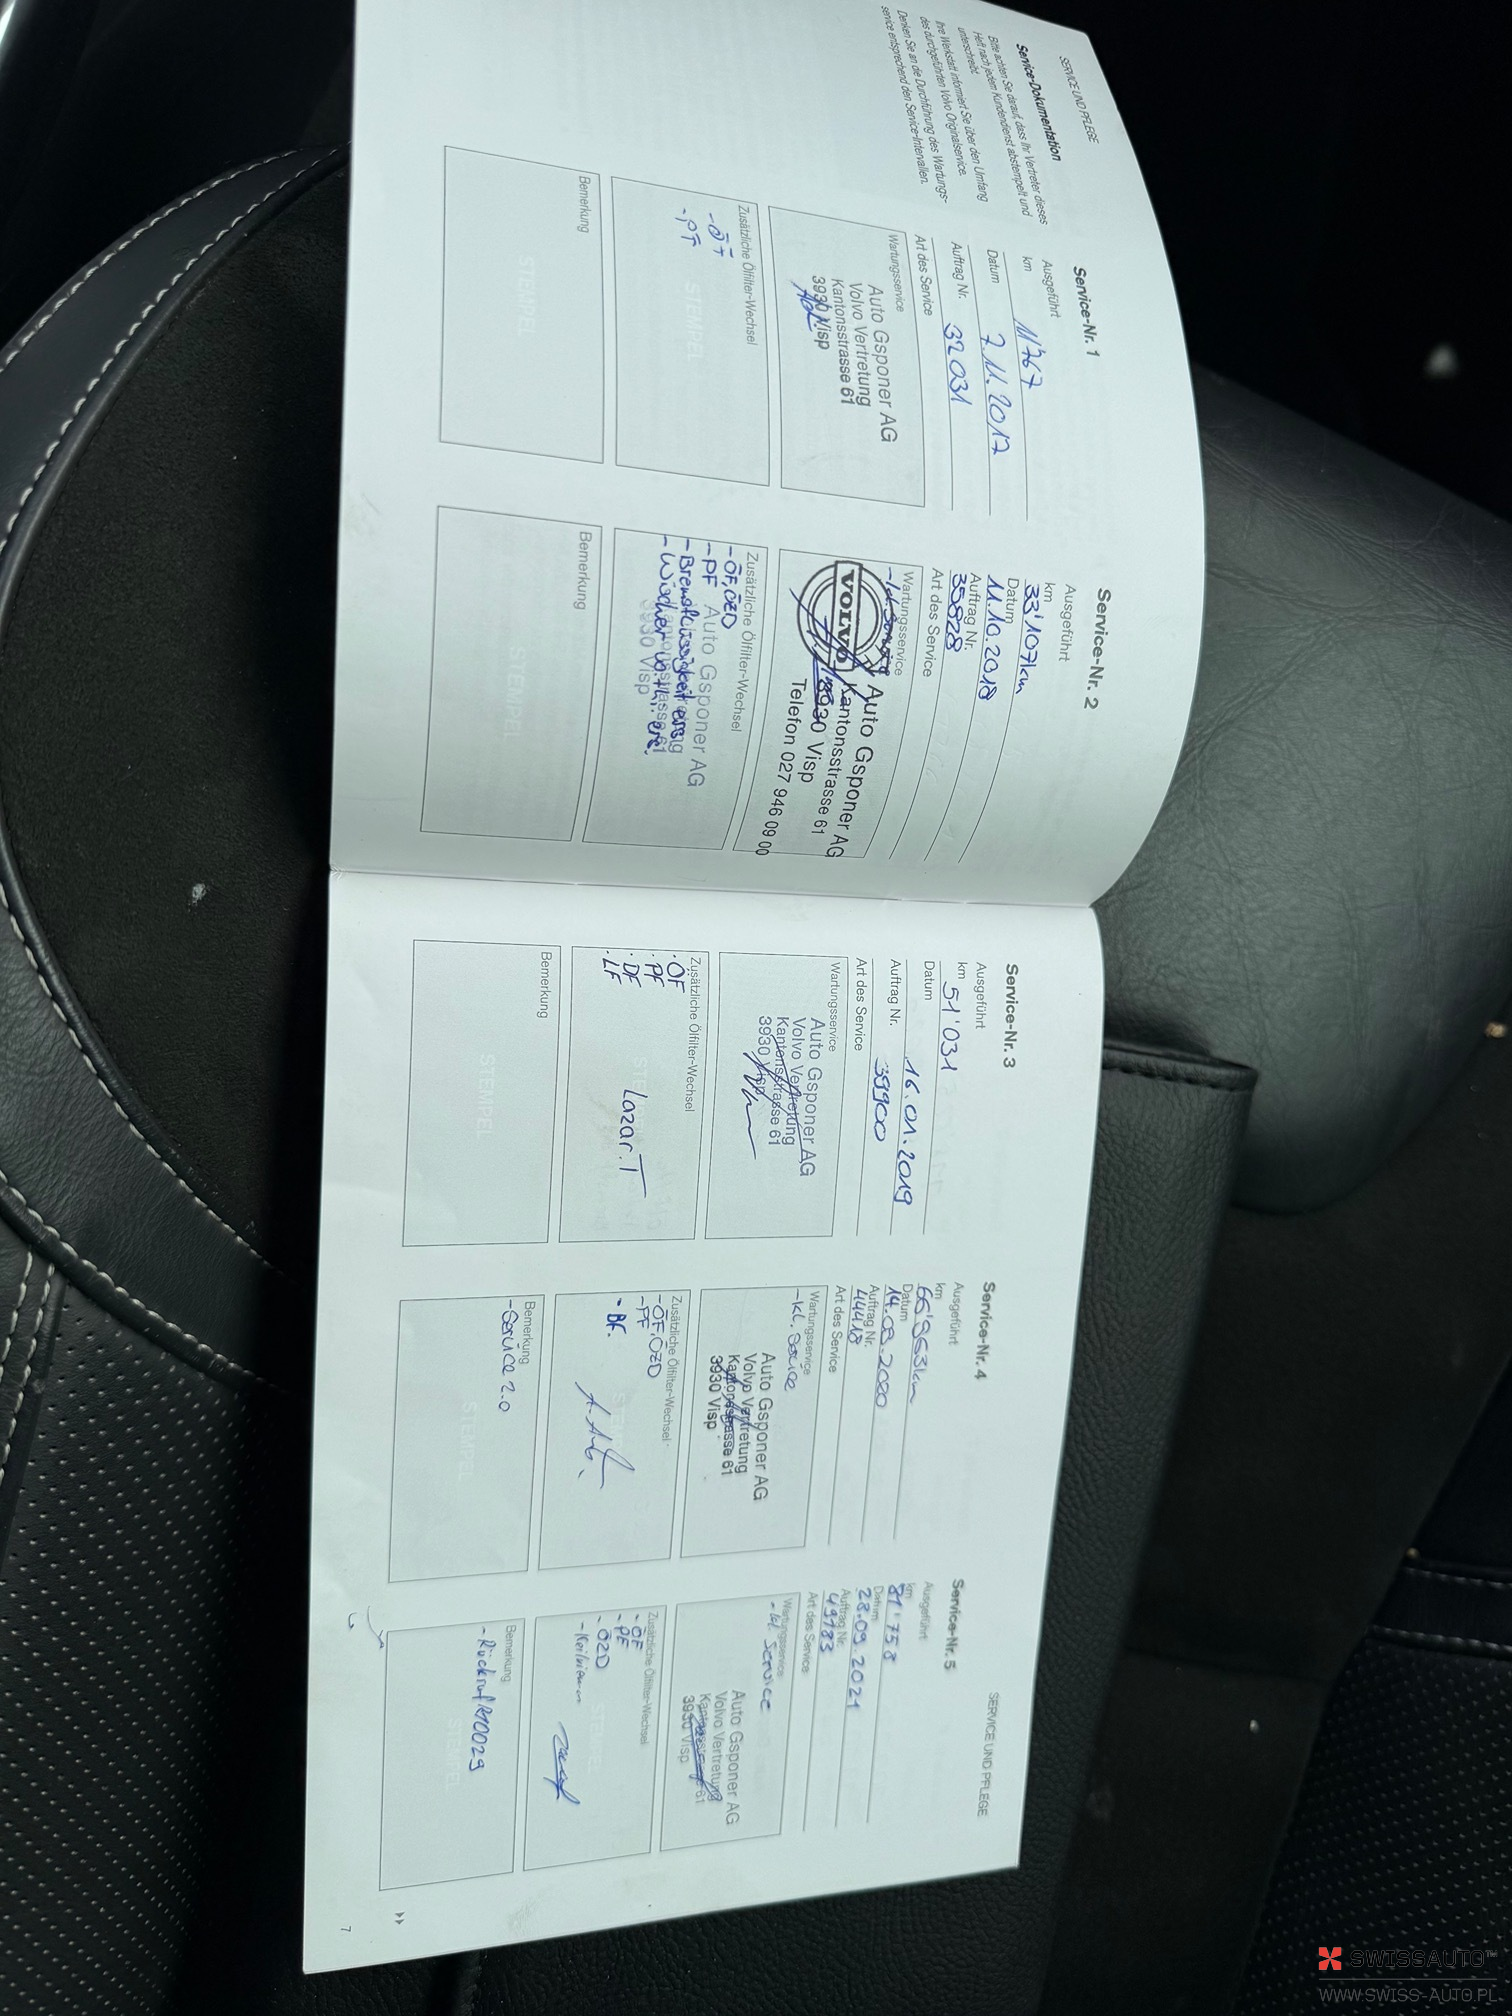 SERVICE UND PFLEGE
Service-Dokumentation
Bitte achten Sie darauf, dass Ihr Vertreter dieses
Heft nach jedem Kundendienst abstempelt und
unterschreibt.
Ihre Werkstatt informiert Sie über den Umfang
des durchgeführten Volvo Originalservice.
Denken Sie an die Durchführung des Wartungs-
service entsprechend den Service-Intervallen.
Service-Nr. 1
Ausgeführt
km 11'767
Datum 7.11.2017
Auftrag Nr. 32031
Art des Service
Wartungsservice
Auto Gsponer AG
Volvo Vertretung
Kantonsstrasse 61
3930 Visp
Zusätzliche Ölfilter-Wechsel
- PF
STEMPEL
Bemerkung
STEMPEL
Service-Nr. 2
Ausgeführt
km
33'107km
Datum
11.10.2018
Auftrag Nr.
35828
Art des Service
Wartungsservice
- kl. Service
VOLVO
Auto Gsponer AG
Kantonsstrasse 61
3930 Visp
Telefon 027 946 09 00
Zusätzliche Ölfilter-Wechsel
- ÖF, ÖZD
- PF
Auto Gsponer AG
- Bremsflüssigkeit ers.
3930 Visp
Bemerkung
STEMPEL
Service-Nr. 3
Ausgeführt
km 51'031
Datum 16.01.2019
Auftrag Nr. 39900
Art des Service
Wartungsservice
Auto Gsponer AG
Volvo Vertretung
Kantonsstrasse 61
3930 Visp
Zusätzliche Ölfilter-Wechsel
. ÖF
. PF
. DF
. LF
Lazar.T
Bemerkung
STEMPEL
Service-Nr. 4
Ausgeführt
km
66'963km
Datum
14.09.2020
Auftrag Nr.
Art des Service
Wartungsservice
- kl. Service
Auto Gsponer AG
Volvo Vertretung
Kantonsstrasse 61
3930 Visp
Zusätzliche Ölfilter-Wechsel
- ÖF, ÖZD
- PF
- BF.
Bemerkung
- Service 2.0
STEMPEL
SERVICE UND PFLEGE
Service-Nr. 5
Ausgeführt
km
81'758
Datum
28.09.2021
Auftrag Nr.
49183
Art des Service
Wartungsservice
- kl Service
Auto Gsponer AG
Volvo Vertretung
Kantonsstrasse 61
3930 Visp
Zusätzliche Ölfilter-Wechsel
- ÖF
- PF
- ÖZD
- Keilriemen
Bemerkung
- Rückruf R10029
STEMPEL
7
SWISSAUTO
WWW.SWISS-AUTO.PL